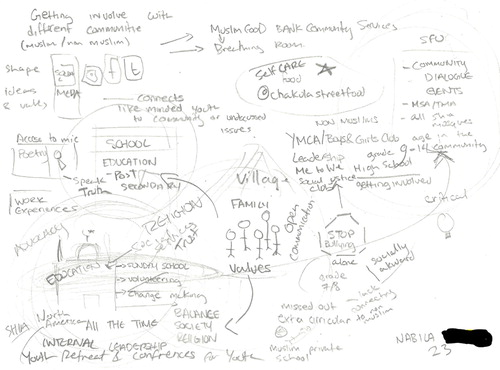 Getting involve with
different communitie
(muslim/non muslim)
Muslim Food BANK Community Services
Breathing Room.
SFU
- COMMUNITY
DIALOGUE
EVENTS
- MSA/TMA
SELF CARE
food
@chakulastreetfood
Shape
Ideas
& values
Social
MEDIA
f
t
connects
like minded youth
to community or undercover
issues.
NON MUSLIMS
YMCA/Boys & Girls Club
age in the
community
Leadership
grade 9-12
Me to We
High School
social justice
club
getting involved
Access to mic
Poetry
Speak
Truth
SCHOOL
EDUCATION
- Post
secondary
Village
FAMILY
Values
Open
communication
WORK
Experiences
RELIGION
Trust
ADVOCACY
EDUCATION
SUNDAY SCHOOL
volunteering
change making
STOP
Bullying
alone
socially
awkward
critical
grade
7/8
lack
connecting
to non
muslim
missed out
extra circular
muslim private
school
North
America
ALL THE TIME
BALANCE
SOCIETY
RELIGION
INTERNAL LEADERSHIP
Youth Retreat & Confrences for Youth
NABILA
23